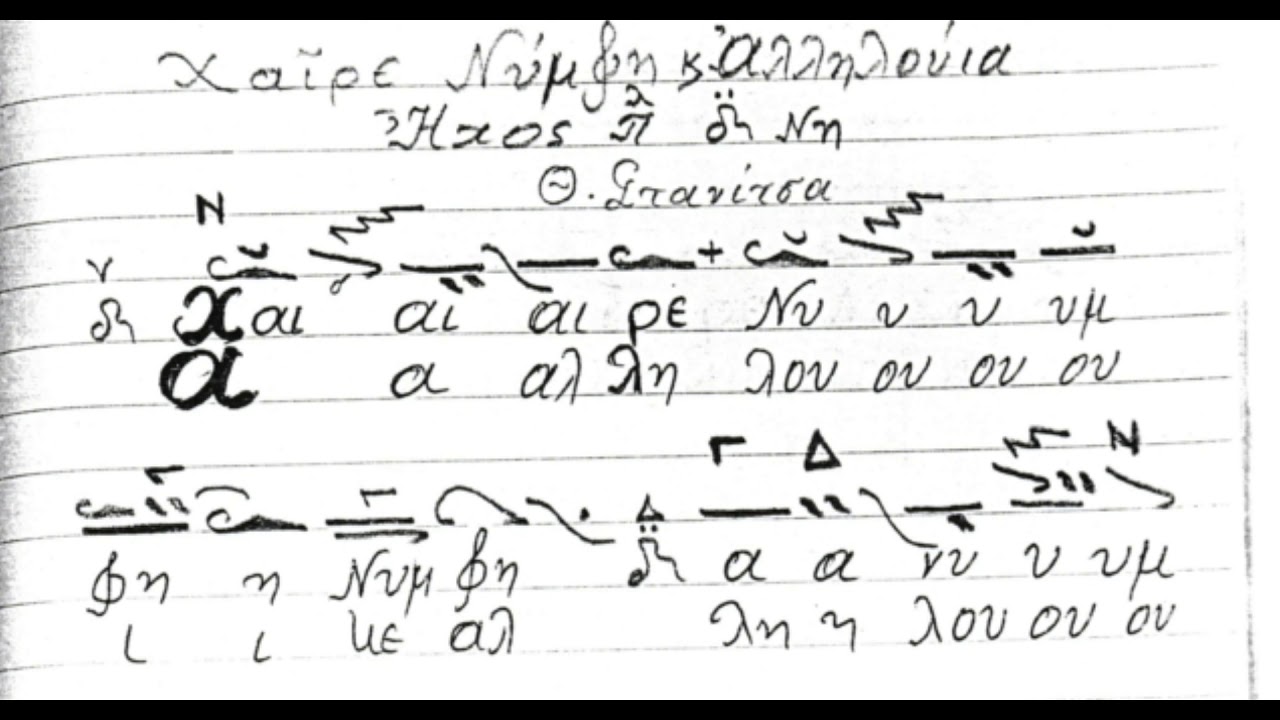 Χαῖρε Νύμφη κ Ἀλληλούια
Ἦχος πλ δ Νη
Θ. Στανίτσα
Ν
ν
δι Χαι αι αι ρε Νυ υ υ υμ
Α α αλ λη λου ου ου ου
Γ Δ Ν
φη η Νυμ φη Δ δι α α νυ υ υμ
ι ι κε αλ λη η λου ου ου